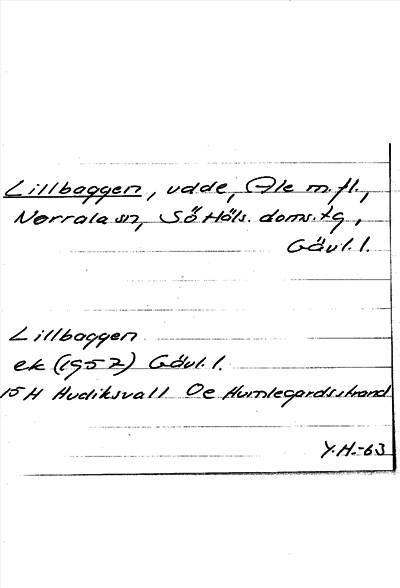 Lillbaggen, udde, Ale m.fl.,
Norrala sn, Sö Häls. doms.tg,
Gävl.l.
Lillbaggen
ek (1952) Gävl.l.
15H Hudiksvall Oe Humlegardsstrand
Y.H.-63